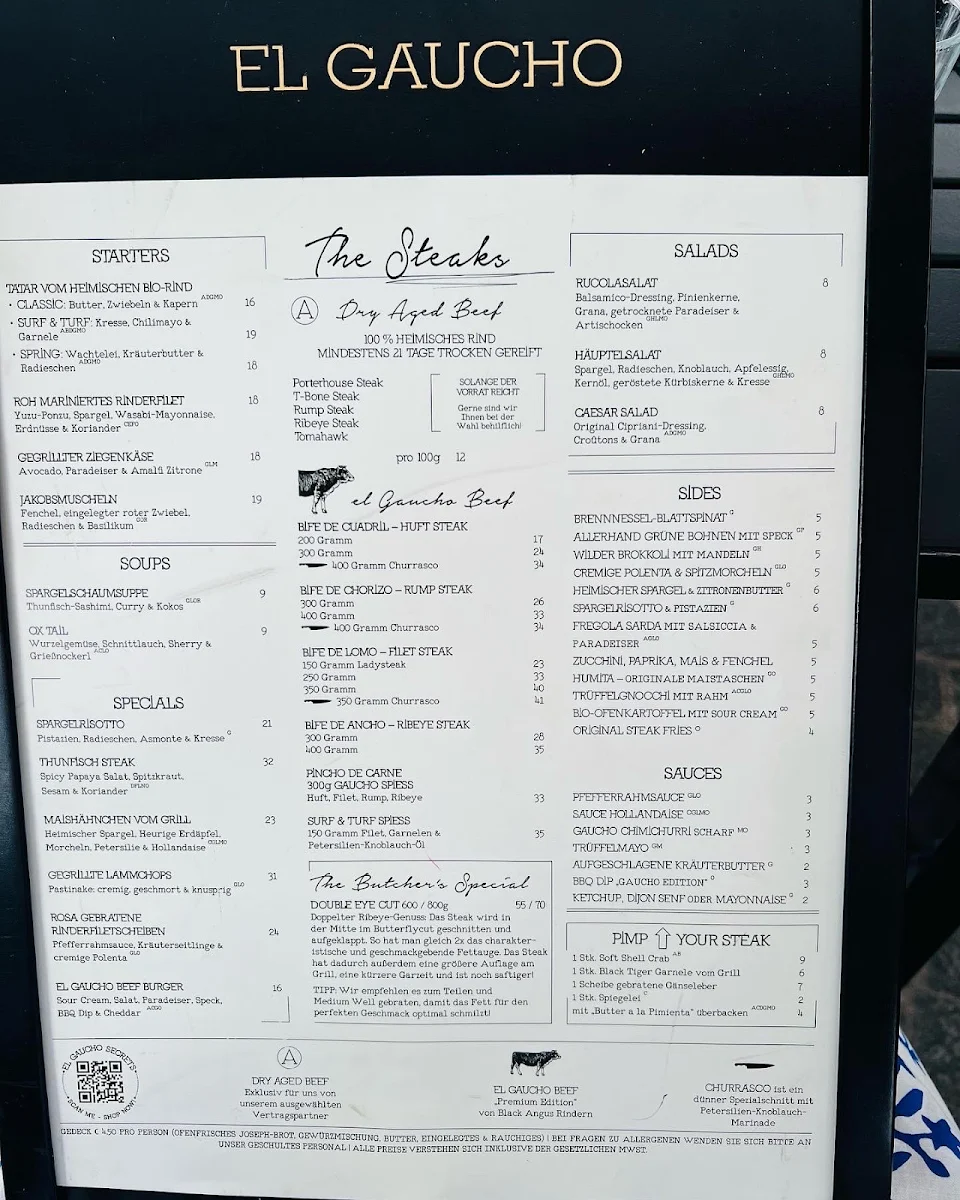 EL GAUCHO
STARTERS
TATAR VOM HEIMISCHEN BIO-RIND
• CLASSIC: Butter, Zwiebeln & Kapern ADGMO 16
• SURF & TURF: Kresse, Chilimayo &
Garnele ABDGMO 19
• SPRING: Wachtelei, Kräuterbutter &
Radieschen ADGMO 18
ROH MARINIERTES RINDERFILET 18
Yuzu-Ponzu, Spargel, Wasabi-Mayonnaise,
Erdnüsse & Koriander CEFO
GEGRILLTER ZIEGENKÄSE 18
Avocado, Paradeiser & Amalfi Zitrone GLM
JAKOBSMUSCHELN 19
Fenchel, eingelegter roter Zwiebel,
Radieschen & Basilikum
SOUPS
SPARGELSCHAUMSUPPE 9
Thunfisch-Sashimi, Curry & Kokos
OX TAIL 9
Wurzelgemüse, Schnittlauch, Sherry &
Grießnockerl ACLO
SPECIALS
SPARGELRISOTTO 21
Pistazien, Radieschen, Asmonte & Kresse G
THUNFISCH STEAK 32
Spicy Papaya Salat, Spitzkraut,
Sesam & Koriander DFLNO
MAISHÄHNCHEN VOM GRILL 23
Heimischer Spargel, Heurige Erdäpfel,
Morcheln, Petersilie & Hollandaise CGLMO
GEGRILLTE LAMMCHOPS 31
Pastinake: cremig, geschmort & knusprig GLO
ROSA GEBRATENE
RINDERFILETSCHEIBEN 24
Pfefferrahmsauce, Kräuterseitlinge &
cremige Polenta GLO
EL GAUCHO BEEF BURGER 16
Sour Cream, Salat, Paradeiser, Speck,
BBQ Dip & Cheddar
The Steaks
A Dry Aged Beef
100 % HEIMISCHES RIND
MINDESTENS 21 TAGE TROCKEN GEREIFT
Porterhouse Steak
T-Bone Steak
Rump Steak
Ribeye Steak
Tomahawk
SOLANGE DER
VORRAT REICHT
Gerne sind wir
Ihnen bei der
Wahl behilflich!
pro 100g 12
el Gaucho Beef
BIFE DE CUADRIL – HUFT STEAK
200 Gramm 17
300 Gramm 24
400 Gramm Churrasco 34
BIFE DE CHORIZO – RUMP STEAK
300 Gramm 26
400 Gramm 33
400 Gramm Churrasco 34
BIFE DE LOMO – FILET STEAK
150 Gramm Ladysteak 23
250 Gramm 33
350 Gramm 40
350 Gramm Churrasco 41
BIFE DE ANCHO – RIBEYE STEAK
300 Gramm 28
400 Gramm 35
PINCHO DE CARNE
300g GAUCHO SPIESS
Huft, Filet, Rump, Ribeye 33
SURF & TURF SPIESS
150 Gramm Filet, Garnelen & 35
Petersilien-Knoblauch-Öl
The Butcher's Special
DOUBLE EYE CUT 600 / 800g 55 / 70
Doppelter Ribeye-Genuss: Das Steak wird in
der Mitte im Butterflycut geschnitten und
aufgeklappt. So hat man gleich 2x das charakter-
istische und geschmackgebende Fettauge. Das Steak
hat dadurch außerdem eine größere Auflage am
Grill, eine kürzere Garzeit und ist noch saftiger!
TIPP: Wir empfehlen es zum Teilen und
Medium Well gebraten, damit das Fett für den
perfekten Geschmack optimal schmilzt!
SALADS
RUCOLASALAT 8
Balsamico-Dressing, Pinienkerne,
Grana, getrocknete Paradeiser &
Artischocken GHLMO
HÄUPTELSALAT 8
Spargel, Radieschen, Knoblauch, Apfelessig,
Kernöl, geröstete Kürbiskerne & Kresse
CAESAR SALAD 8
Original Cipriani-Dressing,
Croûtons & Grana ADGMO
SIDES
BRENNNESSEL-BLATTSPINAT G 5
ALLERHAND GRÜNE BOHNEN MIT SPECK 5
WILDER BROKKOLI MIT MANDELN GH 5
CREMIGE POLENTA & SPITZMORCHELN GLO 5
HEIMISCHER SPARGEL & ZITRONENBUTTER G 6
SPARGELRISOTTO & PISTAZIEN G 6
FREGOLA SARDA MIT SALSICCIA &
PARADEISER AGLO 5
ZUCCHINI, PAPRIKA, MAIS & FENCHEL 5
HUMITA – ORIGINALE MAISTASCHEN GO 5
TRÜFFELGNOCCHI MIT RAHM ACGLO 5
BIO-OFENKARTOFFEL MIT SOUR CREAM GO 5
ORIGINAL STEAK FRIES O 4
SAUCES
PFEFFERRAHMSAUCE GLO 3
SAUCE HOLLANDAISE CGLMO 3
GAUCHO CHIMICHURRI SCHARF MO 3
TRÜFFELMAYO GM 3
AUFGESCHLAGENE KRÄUTERBUTTER G 2
BBQ DIP „GAUCHO EDITION“ O 3
KETCHUP, DIJON SENF ODER MAYONNAISE G 2
PIMP YOUR STEAK
1 Stk. Soft Shell Crab AB 9
1 Stk. Black Tiger Garnele vom Grill 6
1 Scheibe gebratene Gänseleber 7
1 Stk. Spiegelei C 2
mit „Butter a la Pimienta“ überbacken ACDGMO 4
EL GAUCHO SECRETS
SCAN ME - SHOP NOW!
A
DRY AGED BEEF
Exklusiv für uns von
unserem ausgewählten
Vertragspartner
EL GAUCHO BEEF
„Premium Edition“
von Black Angus Rindern
CHURRASCO ist ein
dünner Spezialschnitt mit
Petersilien-Knoblauch-
Marinade
GEDECK € 4,50 PRO PERSON (OFENFRISCHES JOSEPH-BROT, GEWÜRZMISCHUNG, BUTTER, EINGELEGTES & RAUCHIGES) | BEI FRAGEN ZU ALLERGENEN WENDEN SIE SICH BITTE AN
UNSER GESCHULTES PERSONAL | ALLE PREISE VERSTEHEN SICH INKLUSIVE DER GESETZLICHEN MWST.